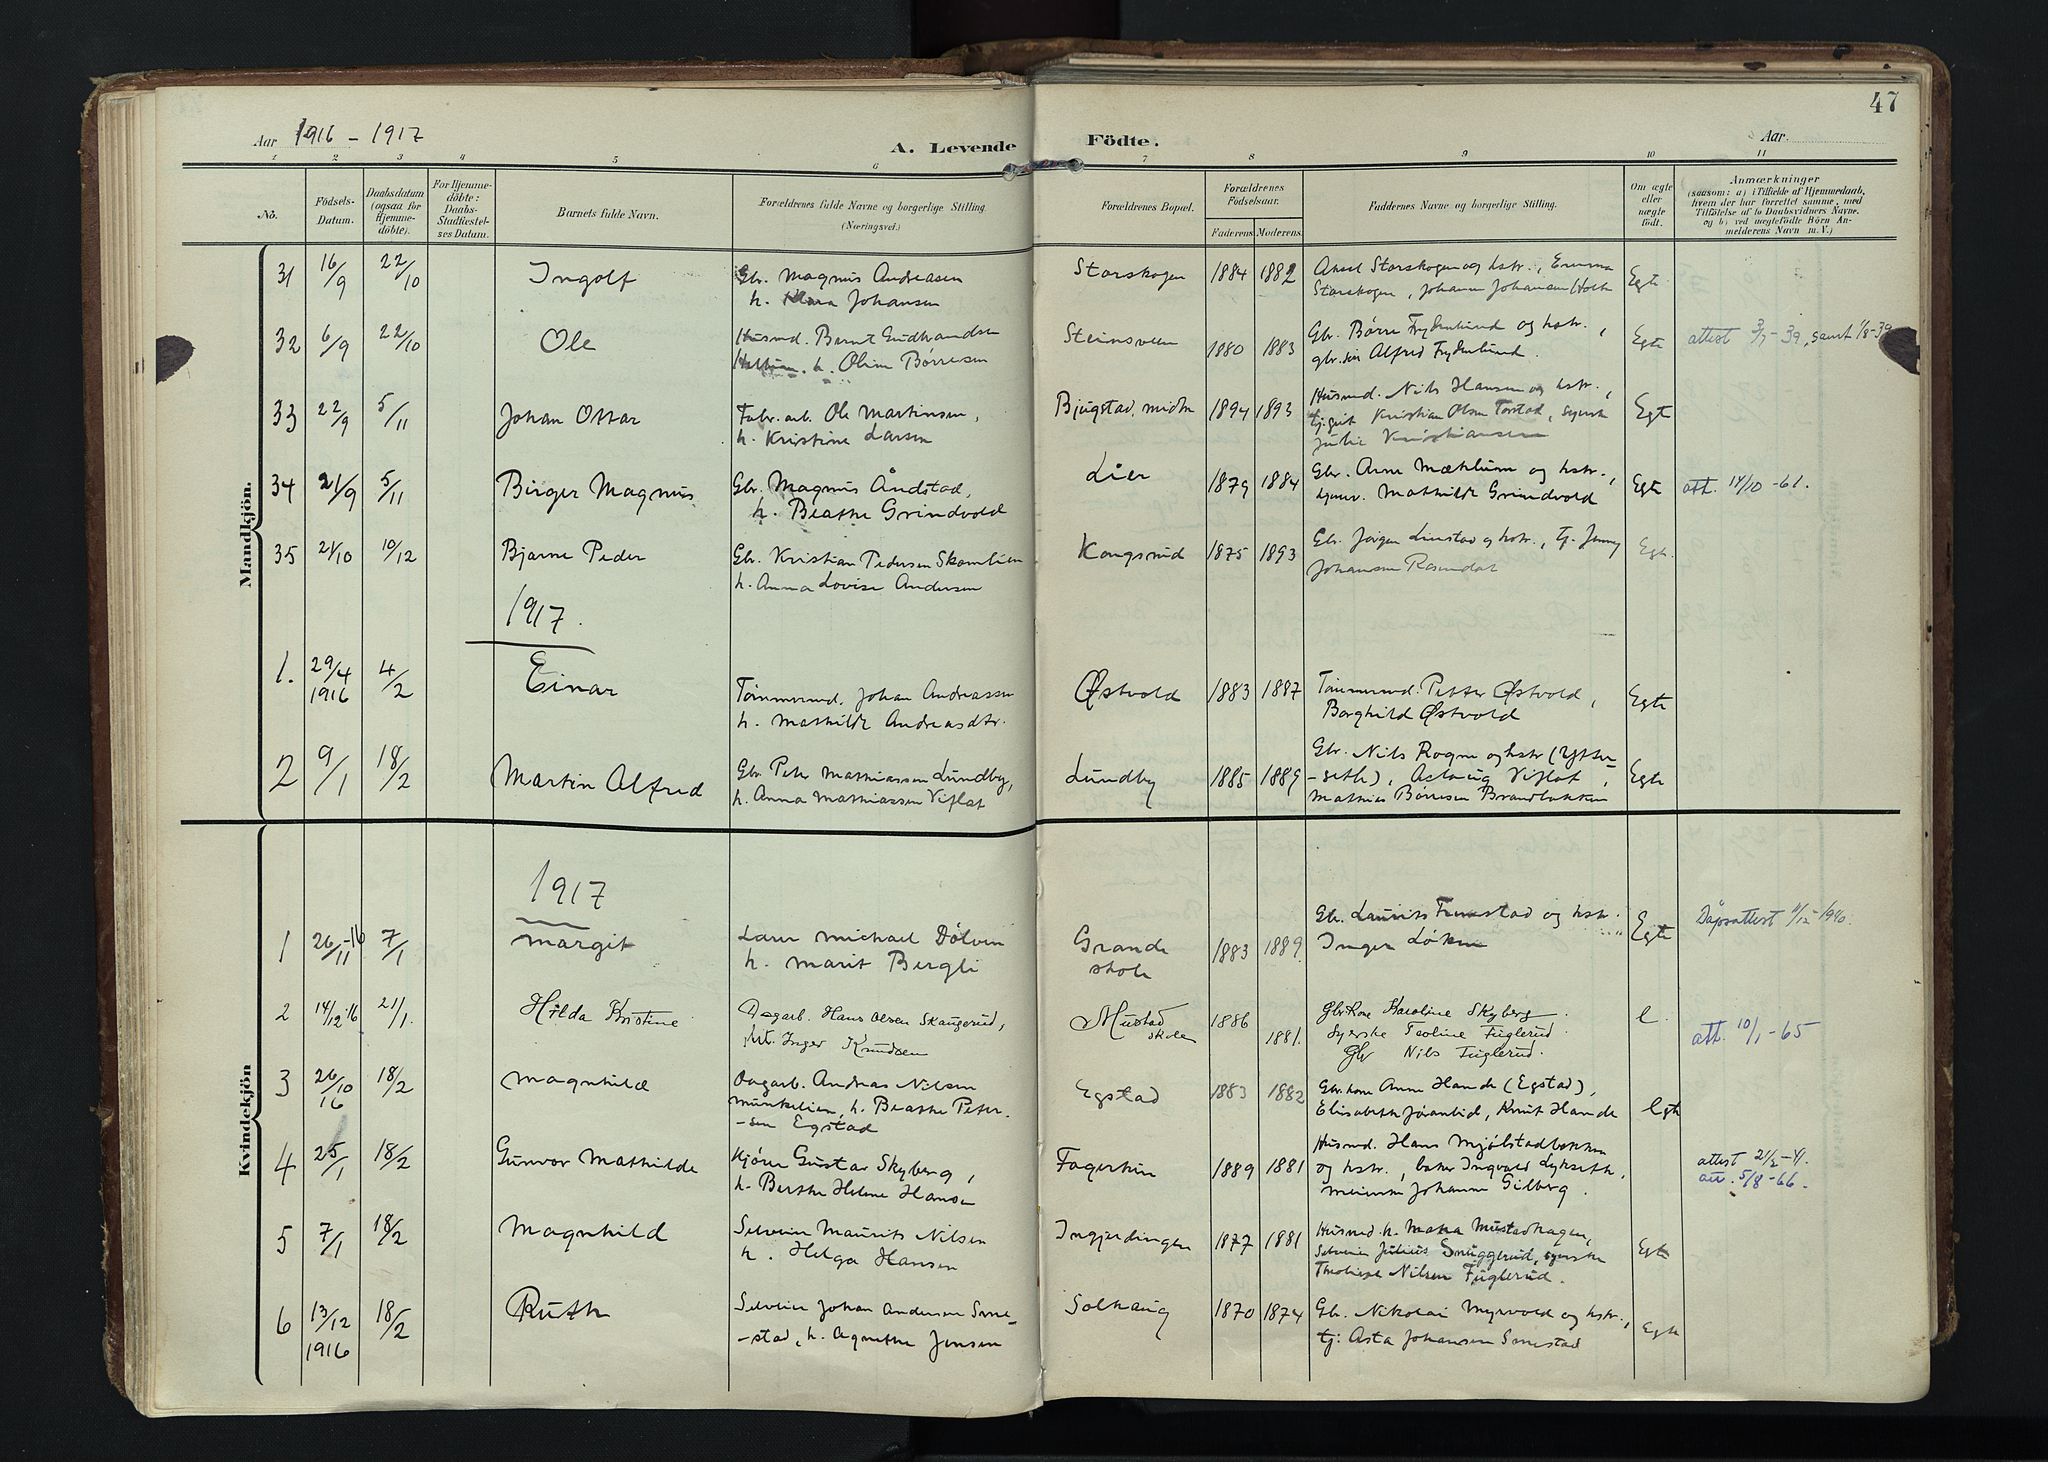 47
Aar 1916 - 1917
A. Levende Födte.
Aar
1 2 3 4 5 6 7 8 9 10 11
No.
Födsels-Datum.
Daabsdatum (ogsaa for Hjemme-döbte).
For Hjemme-döbte: Daabs-Stadfæstel-ses Datum.
Barnets fulde Navn.
Forældrenes fulde Navne og borgerlige Stilling. (Næringsvei.)
Forældrenes Bopæl.
Forældrenes Födselsaar.
Faderens Moderens
Faddernes Navne og borgerlige Stilling.
Om ægte eller uægte födt.
Anmærkninger
(saasom: a) i Tilfælde af Hjemmedaab,
hvem der har forrettet samme, med
Tilföielse af to Daabsvidners Navne,
og b) ved uægtefödte Börn An-
melderens Navn m. V.)
Mandkjön.
31 16/9 22/10 Ingolf Gbr. Magnus Andreasen Storskogen 1884 1882 Aksel Storskogen og hstr., Emma Egte
h. Klara Johansen Storskogen, Johann Johansen Holte
32 6/9 22/10 Ole Husmd. Bernt Gudbrandsen Steinsveen 1880 1883 Gbr. Børre Frydenlund og hstr., Egte attest 3/7-39, samt 1/8-39
h. Oline Børresen gbr. søn Alfred Frydenlund.
33 22/9 5/11 Johan Ottar Fabr. arb. Ole Martinsen, Bjugstad, midtre 1894 1893 Husmd. Nils Hansen og hstr., Egte
h. Kristine Larsen Kristian Olsen Torstad, syerske
Julie Kristiansen
34 21/9 5/11 Birger Magnus Gbr. Magnus Åndstad, Lier 1879 1884 Gbr. Arne Mæhlum og hstr., Egte att. 14/10-61.
h. Beathe Grindvold Mathilde Grindvold
35 21/10 10/12 Bjarne Peder Gbr. Kristian Pedersen Skamlien Kongsrud 1875 1893 Gbr. Jørgen Linstad og hstr., tj. Jenny Egte
h. Anna Lovise Andersen Johansen Rosendal
1917.
1. 29/4 1916 4/2 Einar Tømmermd. Johan Andreassen Østvold 1883 1887 Tømmermd. Petter Østvold, Egte
h. Mathilde Andreasdtr. Borghild Østvold
2 9/1 18/2 Martin Alfred Gbr. Peter Mathiassen Lundby, Lundby 1885 1889 Gbr. Nils Rogne og hstr (Ytter- Egte
h. Anna Mathiassen Viflat -seth), Aslaug Viflat,
Mathias Børresen Brandbakken
Kvindekjön
1917
1 26/11-16 7/1 Margit Lærer Michael Dølven Grande skole 1883 1889. Gbr. Laurits Finnestad og hstr. Egte Dåpsattest 11/12-1940.
h. Marit Bergli Inger Løken
2 14/12-16 21/1. Hilda Kristine Dagarb. Hans Olsen Skaugerud, Mustad skole 1886 1881. Gbr.kone Karoline Skyberg. e. att. 10/1-65
Inger Knudsen Syerske Teoline Fuglerud.
Gbr Nils Fuglerud.
3 26/10 16 18/2 Magnhild Dagarb. Andreas Nilsen Egstad 1883 1882 Gbr.kone Anne Hande (Egstad), Egte
Munkelien, h. Beathe Peter- Elisabeth Jøranlid, Knut Hande
-sen Egstad
4 25/1 18/2 Gunvor Mathilde Kjører Gustav Skyberg, Fagerlien 1889 1881 Husmd. Hans Mjølstadbakken attest 21/2-41.
h. Berthe Helene Hansen og hstr., baker Ingvald Lykseth, att. 5/8-66.
Johann Gilberg.
5 7/1 18/2 Magnhild Selveier Maurits Nilsen Ingjerdingen 1877 1881 Husmd. k. Mustadhagen, Egte
h. Helga Hansen Selveier Julius Snuggerud, syerske
Nilsen Fuglerud.
6 13/12 1916 18/2 Ruth Selveier Johan Andersen Sme- Solhaug 1870 1874 Gbr. Nikolai Myrvold og hstr., Egte
-stad, h. Agnethe Jensen tj: Asta Johansen Smestad